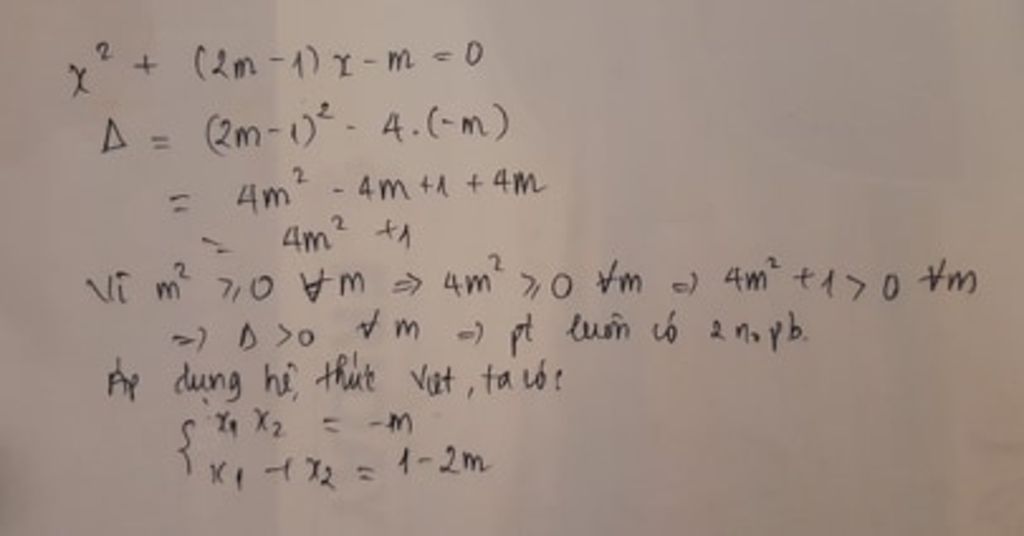 x² + (2m - 1) x - m = 0
Δ = (2m - 1)² - 4.(-m)
= 4m² - 4m + 1 + 4m
= 4m² + 1
Vì m² ⩾ 0 ∀m ⇒ 4m² ⩾ 0 ∀m ⇒ 4m² + 1 > 0 ∀m
⇒ Δ > 0 ∀m ⇒ pt luôn có 2 n₀ pb.
Áp dụng hệ thức Viet, ta có:
{ x₁ x₂ = -m
x₁ + x₂ = 1 - 2m